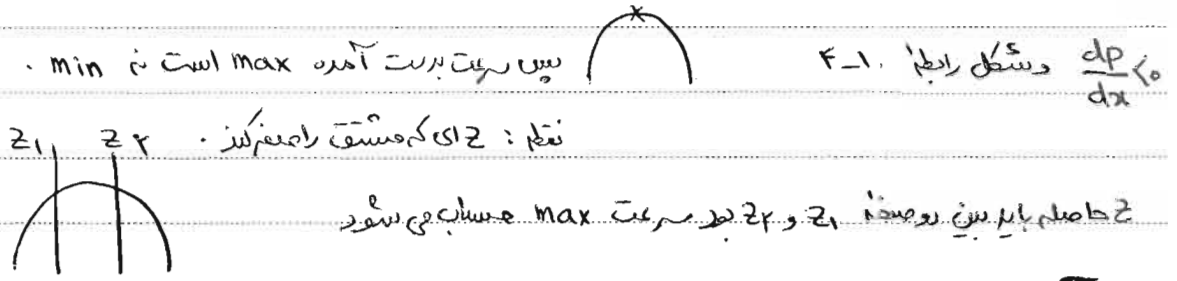 dp/dx < ۰ وشکل رابطهٔ ۱-۴. پس سرعت بدست آمده max است نه min .
نقطه : z ای که مشتق را صفر کند . z۱ z۲
z حاصله باید بین دو صفحهٔ z۱ و z۲ بعد سرعت max حساب می شود